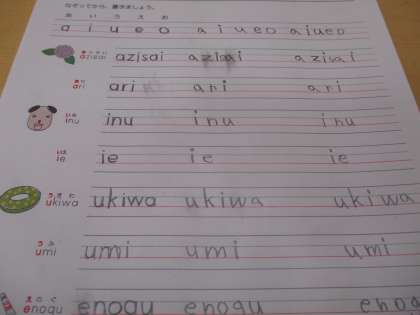 なぞってから、書きましょう。
あ い う え お
a i u e o a i u e o a i u e o
azisai azisai azisai azisai
あり
ari ari ari ari
いぬ
inu inu inu inu
いえ
ie ie ie ie
うきわ
ukiwa ukiwa ukiwa ukiwa
うみ
umi umi umi umi
えのぐ
enogu enogu enogu enog